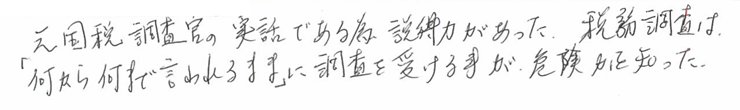 元国税調査官の実話である為説得力があった. 税務調査は.
「何から何まで言われるまま」に調査を受ける事が.危険だと知った.